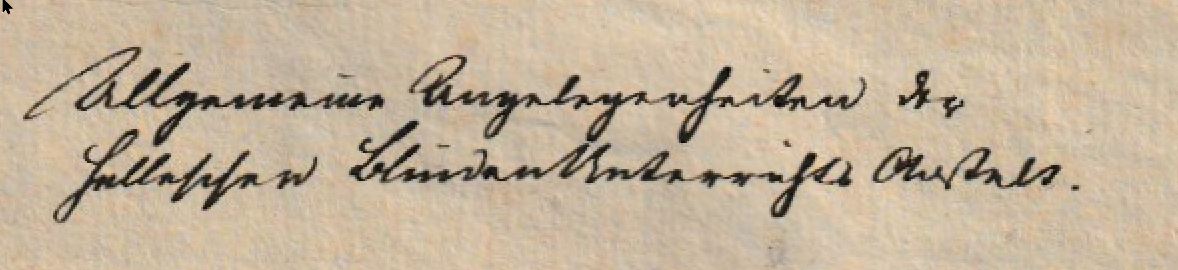 Allgemeine Angelegenheiten der
Halleschen Blinden Unterrichts Anstalt.